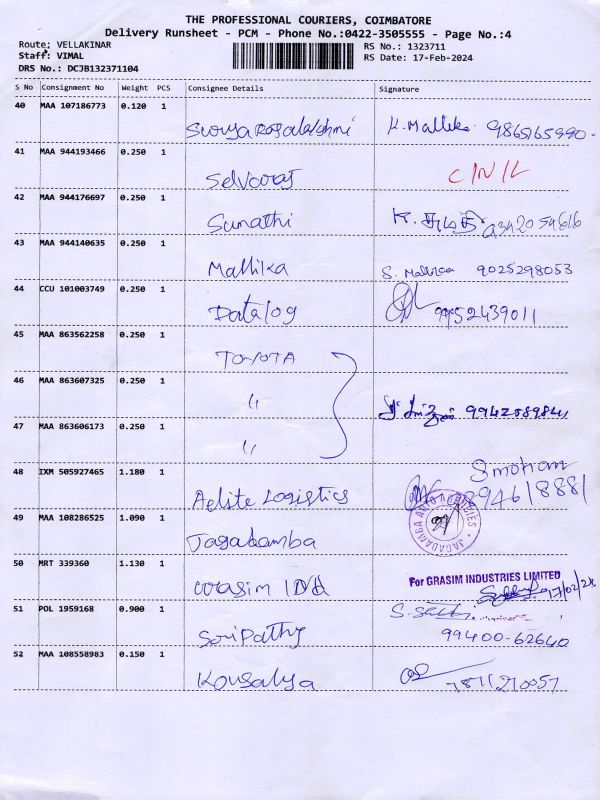 THE PROFESSIONAL COURIERS, COIMBATORE
Delivery Runsheet - PCM - Phone No.:0422-3505555 - Page No.:4
Route: VELLAKINAR RS No.: 1323711
Staff: VIMAL RS Date: 17-Feb-2024
DRS No.: DCJB132371104
S No Consignment No Weight PCS Consignee Details Signature
40 MAA 107186773 0.120 1
Suryarajalakshmi K. Mallika 9865165990
41 MAA 944193466 0.250 1
Selvaraj C/N/L
42 MAA 944176697 0.250 1
Sumathi K. 9342054616
43 MAA 944140635 0.250 1
Mallika S. Mallika 9025298053
44 CCU 101003749 0.250 1
Datalog 9952439011
45 MAA 863562258 0.250 1
TOYOTA
46 MAA 863607325 0.250 1
"
47 MAA 863606173 0.250 1
"
48 IXM 505927465 1.180 1
Smohan
Aelite Logistics
49 MAA 108286525 1.090 1
JAGADAMBA AUTO AGENCIES
Jagadamba
50 MRT 339360 1.130 1
For GRASIM INDUSTRIES LIMITED
Grasim IND 17/02/24
51 POL 1959168 0.900 1
Sripathy 99400-62640
52 MAA 108558983 0.150 1
Kousalya 7811210057